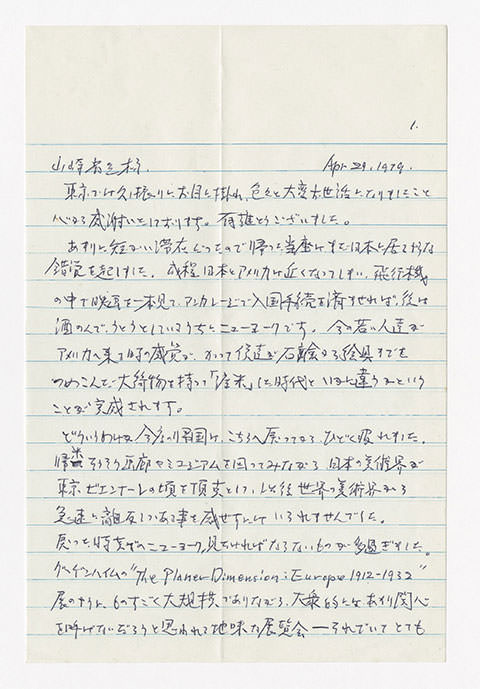 1.
山岸省三様. Apr 29. 1979.
東京では久し振りにお目に掛れ、色々と大変お世話になりましたこと
心から感謝いたしております。有難とうございました。
あまりに短かい滞在だったので帰った当座はまだ日本に居るような
錯覚を起しました. 成程日本とアメリカは近くなってしまい、飛行機
の中で映画を一本見て、アンカレージで入国手続を済ませれば、後は
酒のんで、うとうとしているうちにニューヨークです。今の若い人達が
アメリカへ来る時の感覚が、かつて僕達が石鹸から絵具までを
つめこんで大荷物を持って「渡米」した時代といかに違うかという
ことが完成されます。
どういうわけか今度の帰国は、こちらへ戻ってから、ひどく疲れました.
帰米そうそう画廊やミュジアムを回ってみながら、日本の美術界が
東京ビエンナーレの頃を頂点として、以後世界の美術界から
急速に離反しつつある事を感ぜずにはいられませんでした。
戻った時点でのニューヨーク、見なければならないものが多過ぎました。
グッゲンハイムの"The Planar Dimension: Europe 1912-1932"
展のように、ものすごく大規模でありながら、大衆的にはあまり関心
を呼ばないだろうと思われる地味な展覧会ーそれでいてとても